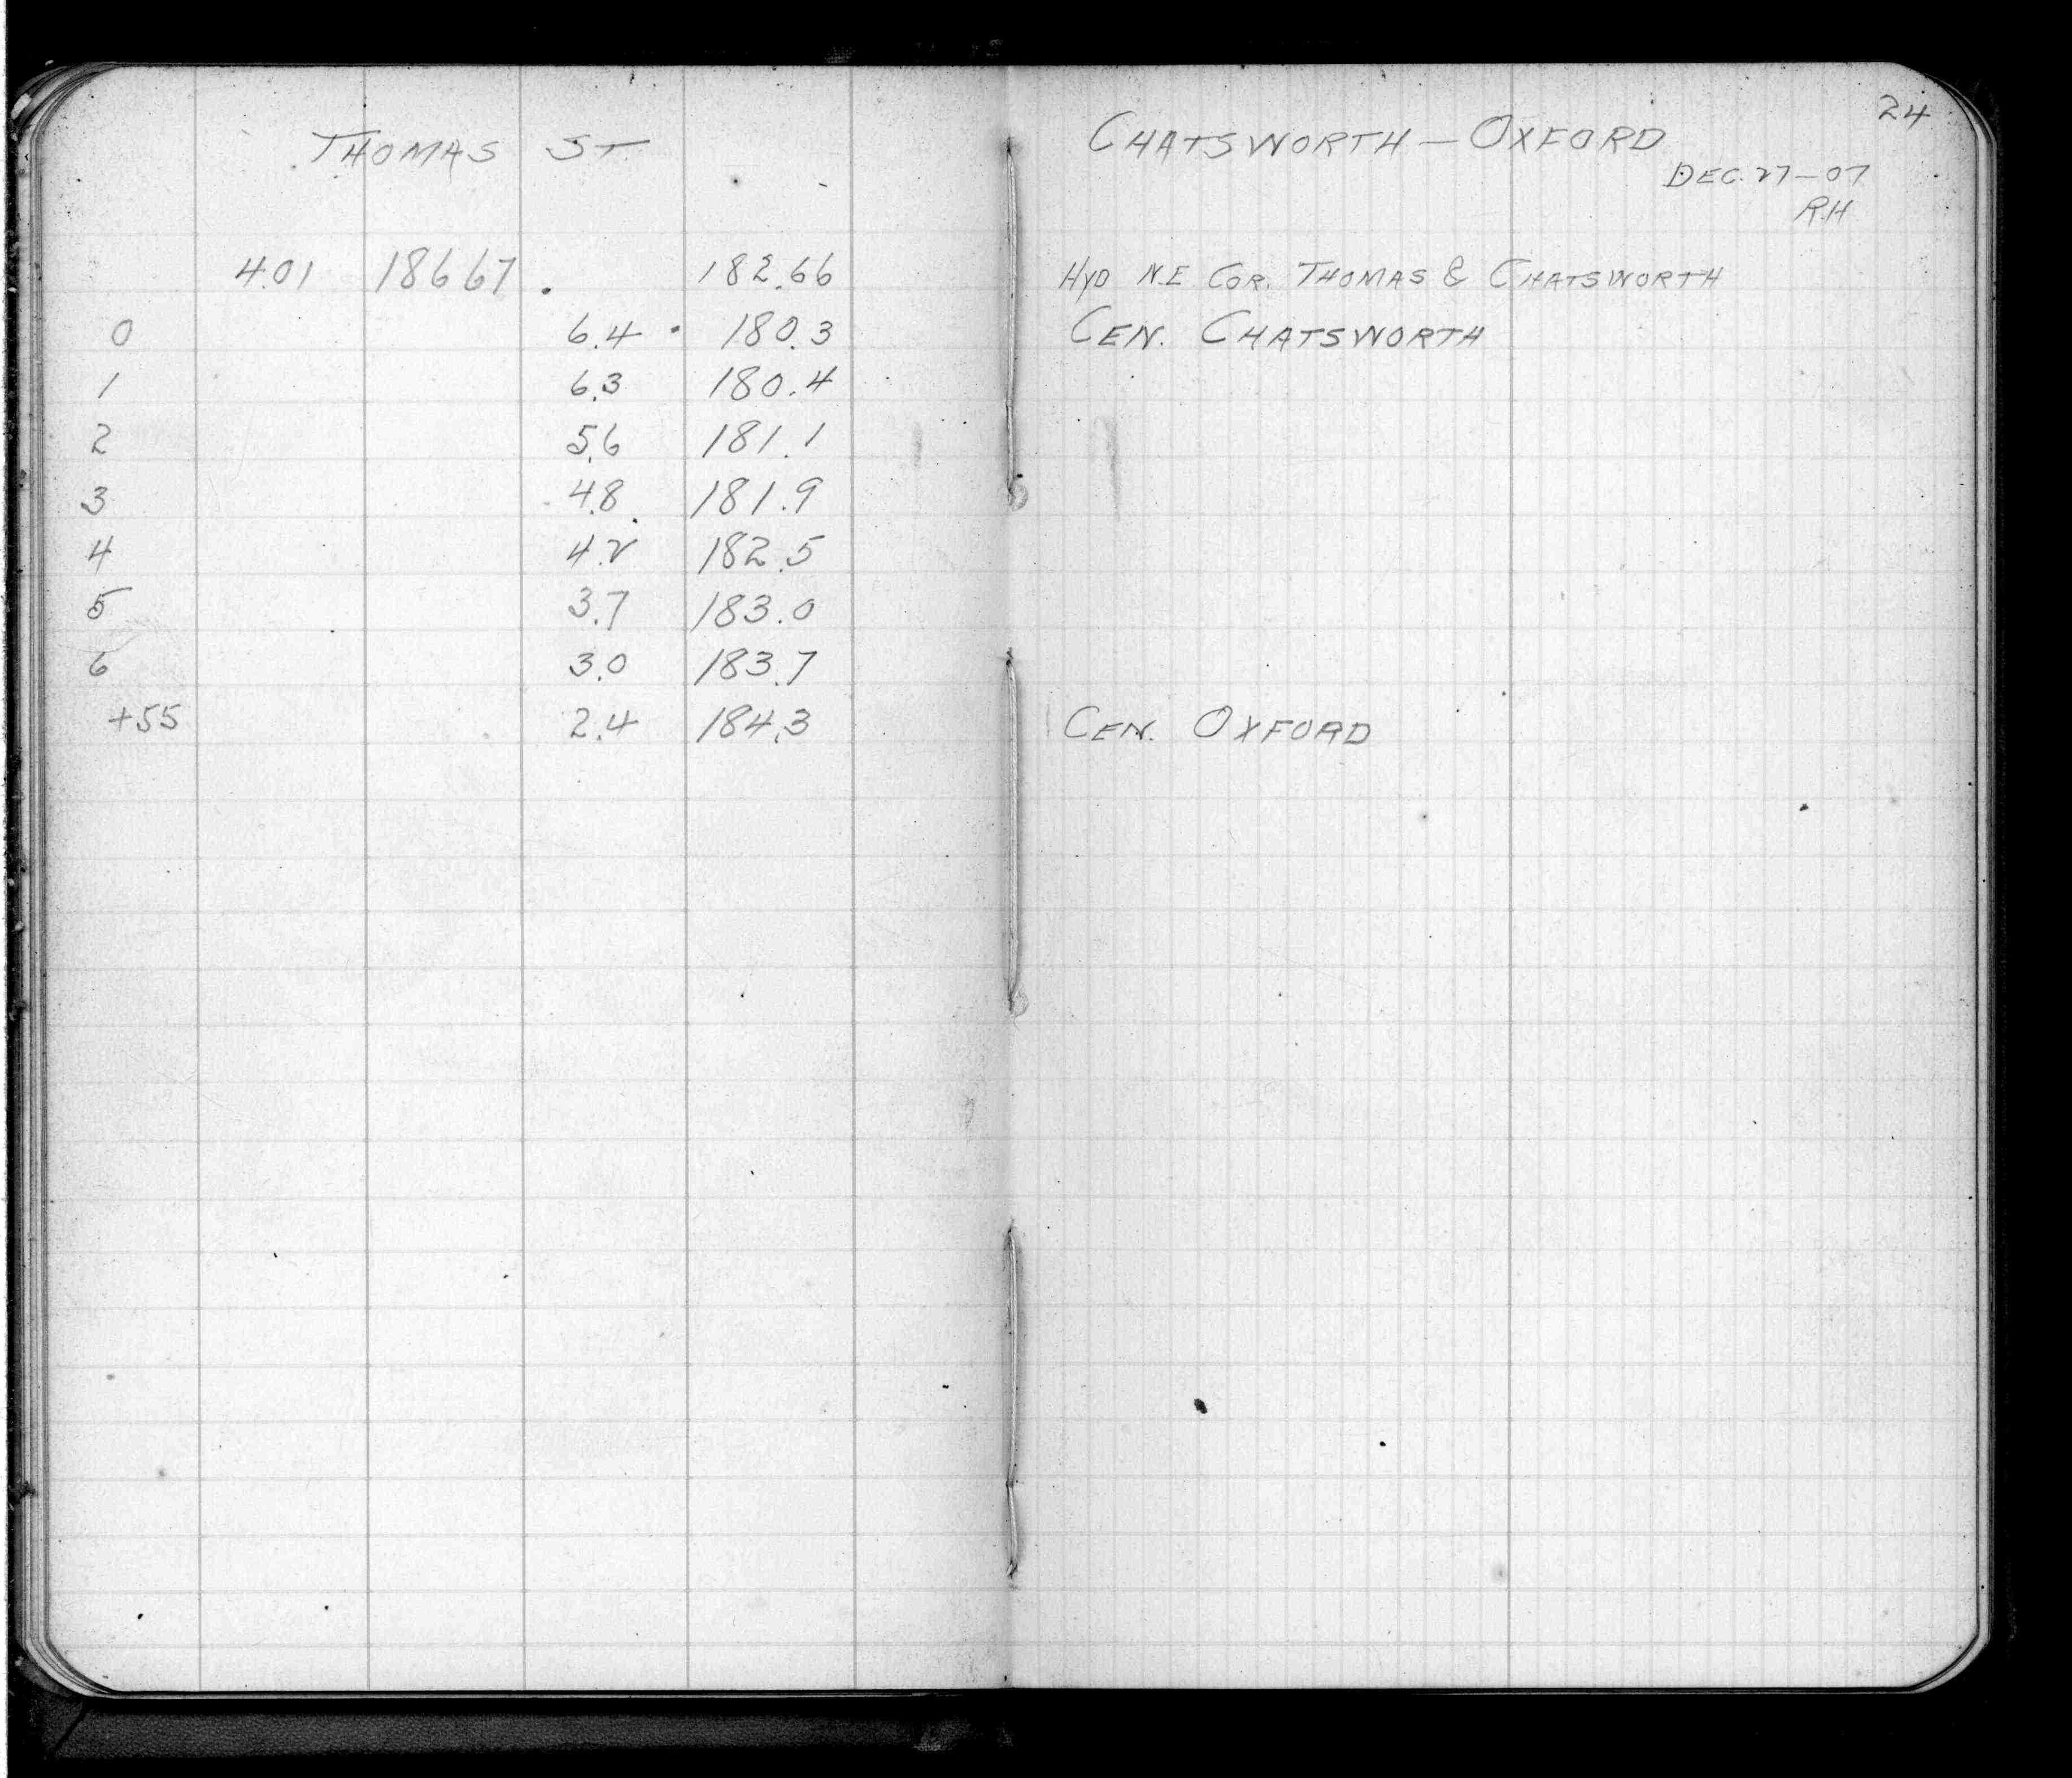 24
THOMAS ST. CHATSWORTH — OXFORD
DEC. 27 — 07
R.H
4.01 186 67 182.66 HYD N.E COR. THOMAS & CHATSWORTH
0 6.4 180.3 CEN. CHATSWORTH
1 6.3 180.4
2 5.6 181.1
3 4.8 181.9
4 4.2 182.5
5 3.7 183.0
6 3.0 183.7
+55 2.4 184.3 CEN. OXFORD